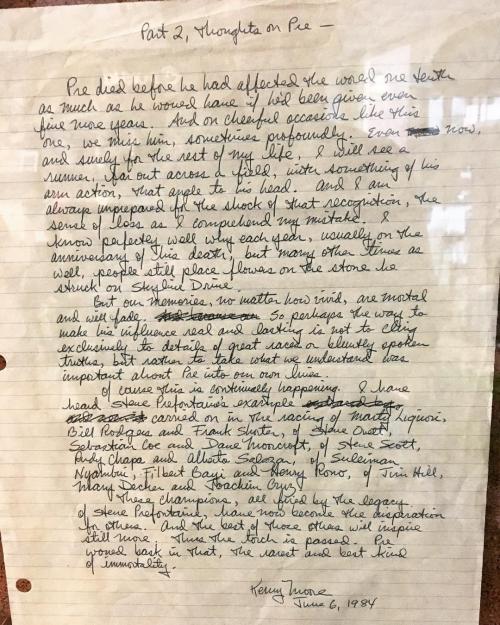 Part 2, Thoughts on Pre —
Pre died before he had affected the world one tenth
as much as he would have if he'd been given even
five more years. And on cheerful occasions like this
one, we miss him, sometimes profoundly. Even now,
and surely for the rest of my life, I will see a
runner, far out across a field, with something of his
arm action, that angle to his head. And I am
always unprepared for the shock of that recognition, the
sense of loss as I comprehend my mistake. I
know perfectly well why each year, usually on the
anniversary of his death, but many other times as
well, people still place flowers on the stone he
struck on Skyline Drive.
But our memories, no matter how vivid, are mortal
and will fade. So perhaps the way to
make his influence real and lasting is not to cling
exclusively to details of great races or bluntly spoken
truths, but rather to take what we understand was
important about Pre into our own lives.
Of course this is continually happening. I have
heard Steve Prefontaine's example
carried on in the racing of Marty Liquori,
Bill Rodgers and Frank Shorter, of Steve Ovett,
Sebastian Coe and Dave Moorcroft, of Steve Scott,
Rudy Chapa and Alberto Salazar, of Suleiman
Nyambui, Filbert Bayi and Henry Rono, of Jim Hill,
Mary Decker and Joachim Cruz.
These champions, all fired by the legacy
of Steve Prefontaine, have now become the inspiration
for others. And the best of those others will inspire
still more. Thus the torch is passed. Pre
would bask in that, the rarest and best kind
of immortality.
Kenny Moore
June 6, 1984